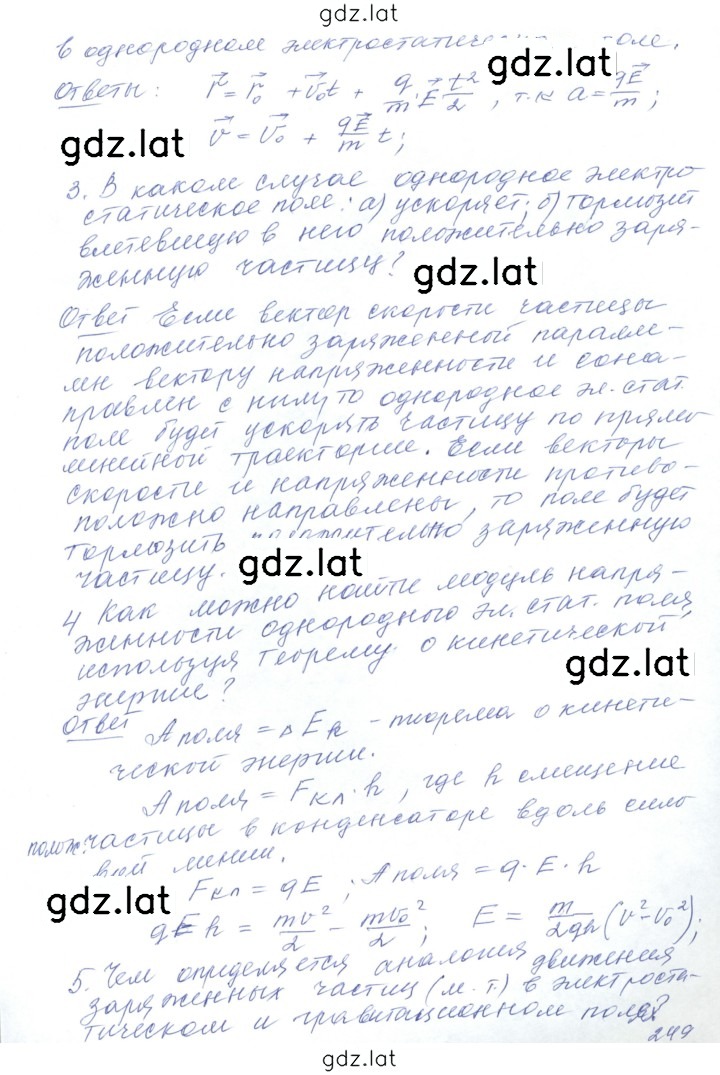 gdz.lat
в однородном электростатическом поле.
gdz.lat
Ответы: r⃗ = r⃗₀ + v⃗₀t + q/m · E⃗ t²/2, т.к a = qE⃗/m;
gdz.lat
v⃗ = v⃗₀ + qE⃗/m t;
3. В каком случае однородное электро-
статическое поле: а) ускоряет; б) тормозит
влетевшую в него положительно заря-
женную частицу?
gdz.lat
Ответ Если вектор скорости частицы
положительно заряженной паралле-
лен вектору напряженности и сона-
правлен с ним, то однородное эл. стат.
поле будет ускорять частицу по прямо
линейной траектории. Если векторы
скорости и напряженности противо-
положно направлены, то поле будет
тормозить положительно заряженную
частицу.
gdz.lat
4 Как можно найти модуль напря-
женности однородного эл. стат. поля,
используя теорему о кинетической
энергии?
gdz.lat
Ответ A поля = Δ Eк - теорема о кинети-
ческой энергии.
A поля = Fкл · h, где h смещение
полож. частицы в конденсаторе вдоль сило
вой линии.
Fкл = qE ; A поля = q · E · h
gdz.lat
qEh = mv²/2 - mv₀²/2 ; E = m/2qh (v² - v₀²);
5. Чем определяется аналогия движения
заряженных частиц (м. т.) в электроста-
тическом и гравитационном полях?
249
gdz.lat